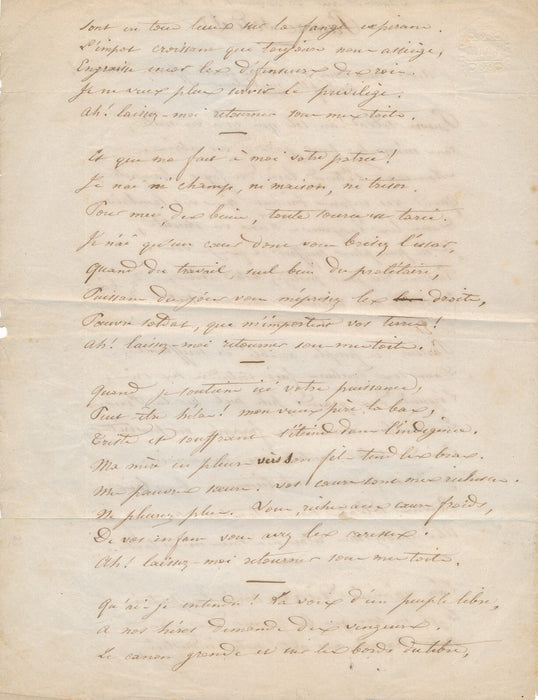 Sont en tous lieux sur la fange
L'impot croissant que toujours nous assiège,
Engraisse encor les défenseurs des rois.
Je ne veux plus servir le privilége.
Ah! laissez-moi retourner sous mes toits.
Et que me fait à moi votre patrie!
Je n'ai ni champ, ni maison, ni trésor.
Pour moi, des biens, toute source est tarie.
Je n'ai qu'un cœur dont vous brisez l'essor,
Quand du travail, seul bien du prolétaire,
Puissans du jour vous méprisez les droits,
Pauvre soldat, que m'importent vos terres!
Ah! laissez-moi retourner sous mes toits.
Quand je soutiens ici votre puissance,
Peut être hélas! mon vieux père la bas,
Triste et souffrant s'éteind dans l'indigence.
Ma mère en pleurs vers son fils tend les bras.
Mes pauvres sœurs. vos cœurs sont mes richesses.
Ne pleurez plus. Vous riches aux cœurs froids,
De vos enfans vous avez les caresses.
Ah! laissez-moi retourner sous mes toits.
Qu'ai-je entendu! La voix d'un peuple libre,
A nos héros demande des vengeurs.
Le canon gronde et sur les bords du tibre,